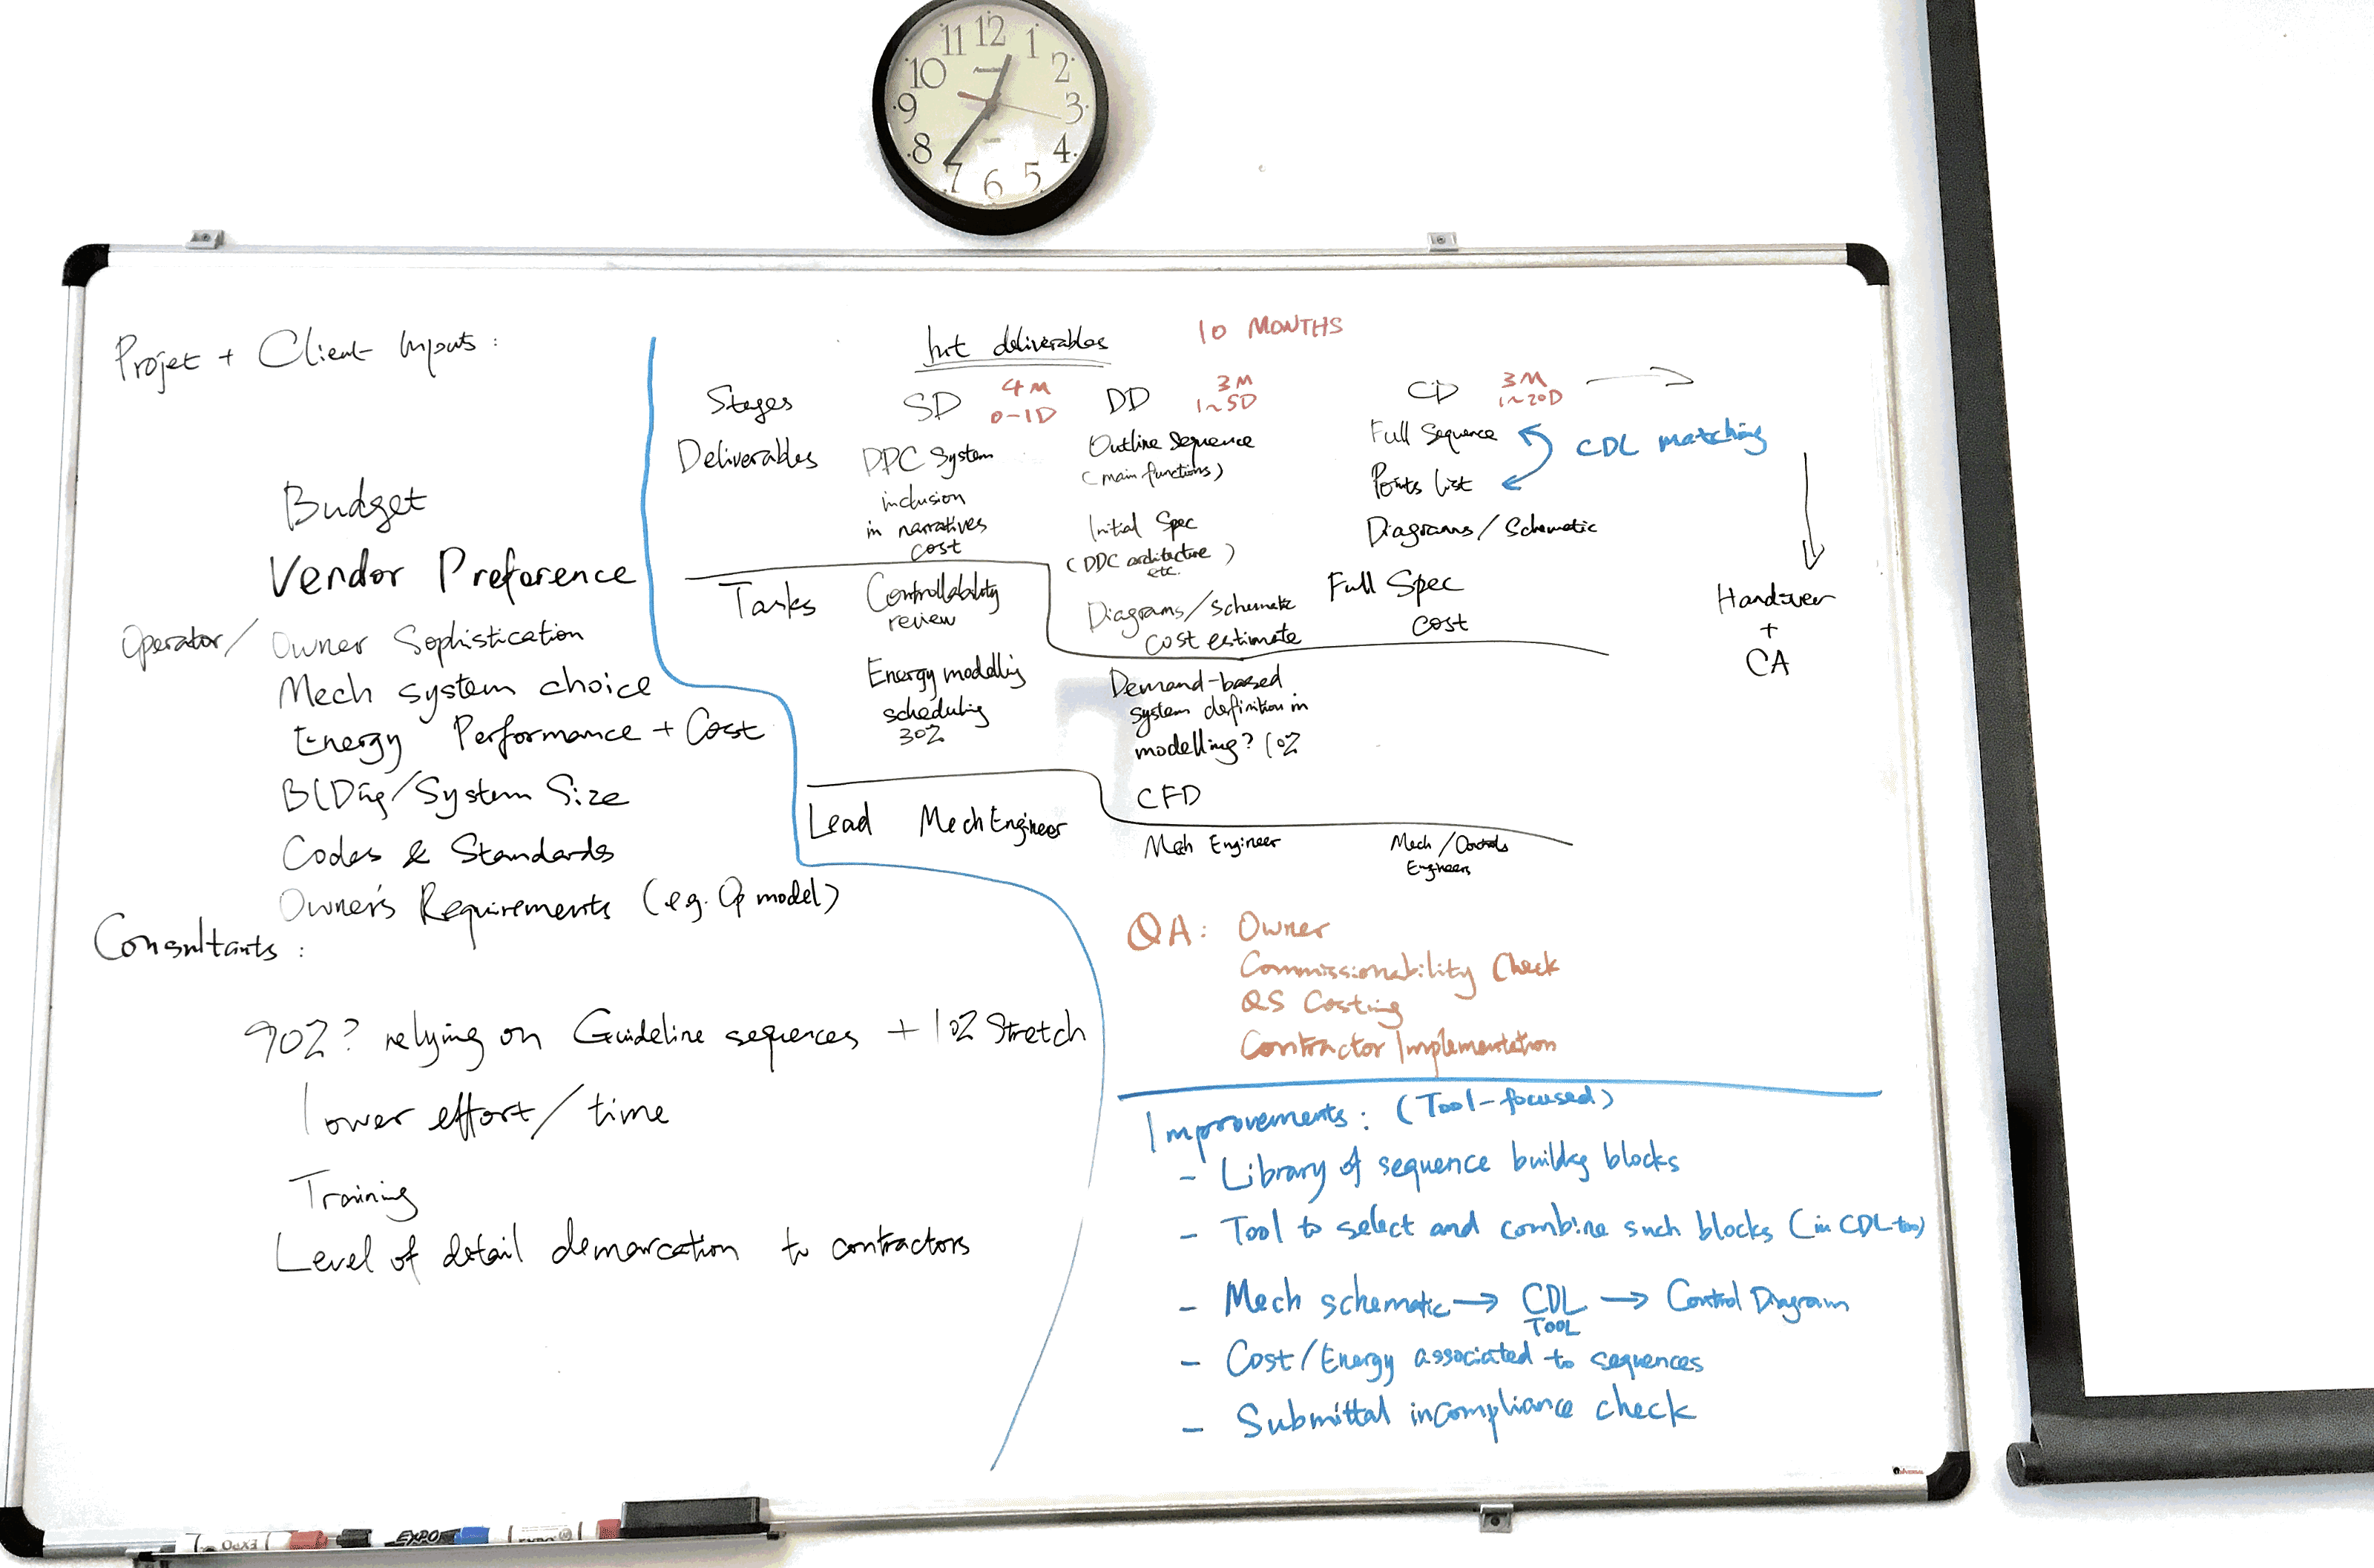 11 12 1
10 2
9 3
8 4
7 6 5
Projet + Client Inputs :
Budget
Vendor Preference
Operator/ Owner Sophistication
Mech system choice
Energy Performance + Cost
BLDing/System Size
Codes & Standards
Owner's Requirements (e.g. Op model)
Consultants :
90%? relying on Guideline sequences + 10% Stretch
lower effort/time
Training
Level of detail demarcation to contractors
deliverables 10 MONTHS
Stages SD 4M DD 3M CD 3M
0-1D 1~5D 1~20D
Deliverables
DDC System
inclusion
in narratives
cost
Outline Sequence
(main functions)
Initial Spec
(DDC architecture
etc. )
Diagrams/Schematic
cost estimate
Full Sequence
CDL matching
Points list
Diagrams/Schematic
Full Spec
cost
Handover
+
CA
Tasks
Controllability
review
Energy modelling
scheduling
30%
Demand-based
system definition in
modelling? 10%
CFD
Lead Mech Engineer
Mech Engineer
Mech/Controls
Engineers
QA: Owner
Commissionability Check
QS Costing
Contractor Implementation
Improvements: (Tool-focused)
- Library of sequence building blocks
- Tool to select and combine such blocks (in CDL too)
- Mech schematic → CDL → Control Diagram
TOOL
- Cost/Energy associated to sequences
- Submittal incompliance check
EXPO
EXPO